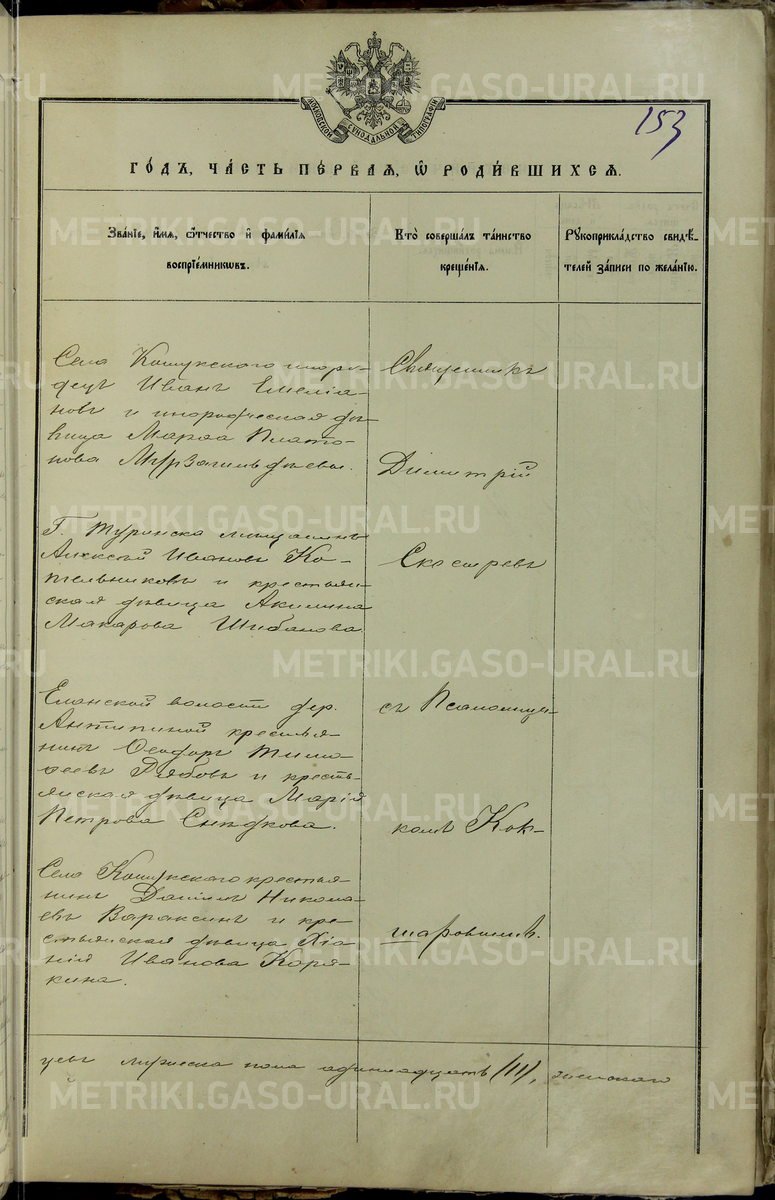 METRIKI.GASO-URAL.RU
МОСКОВСКОЙ СѴНОДАЛЬНОЙ ТИПОГРАФІИ
153
ГОДЪ, ЧАСТЬ ПЕРВАЯ, Ѡ РОДИВШИХСЯ.
Званіе, имя, отчество и фамилія
воспріемниковъ.
Кто совершалъ таинство
крещенія.
Рукоприкладство свидѣ-
телей записи по желанію.
Села Кошукского иноро-
децъ Иванъ Емелія-
новъ и инородческая дѣ-
вица Марѳа Плато-
нова Мурзагильдѣева.
Г. Туринска мещанинъ
Алексѣй Ивановъ Ко-
тельниковъ и крестьян-
ская дѣвица Акилина
Макарова Шибанова
Еланской волости дер.
Антипиной крестья-
нинъ Ѳеодоръ Тимо-
ѳеевъ Рябовъ и кресть-
янская дѣвица Марія
Петрова Снѣдкова.
Села Кошукского крестья-
нинъ Даніилъ Никола-
евъ Вараксинъ и кре-
стьянская дѣвица Хіо-
нія Иванова Коря-
кина.
Священникъ
Димитрій
Скосыревъ
съ Псаломщи-
комъ Кок-
шаровымъ.
цевъ мужеска пола одиннадцать (11), женскаго